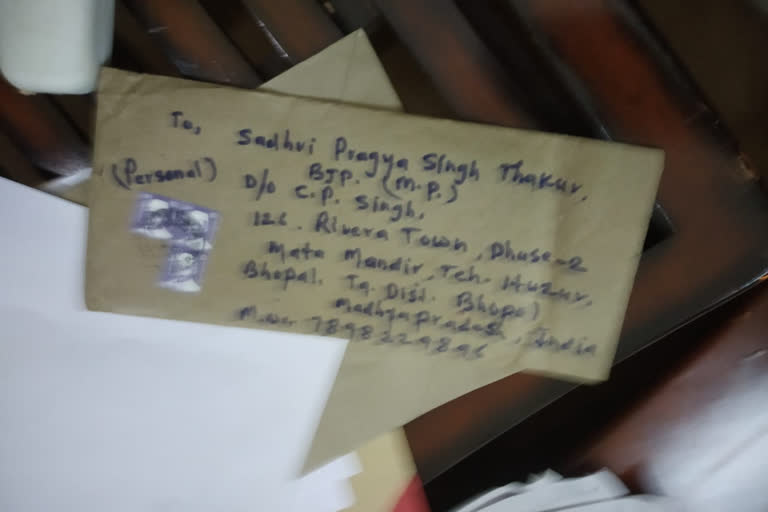 To,
Sadhvi Pragya Singh Thakur,
BJP. (M.P.)
(Personal)
D/o C.P. Singh,
Rivera Town, Phase-2
Mata Mandir, Teh. Huzur,
Bhopal. Tq. Dist. Bhopal
Madhyapradesh, India